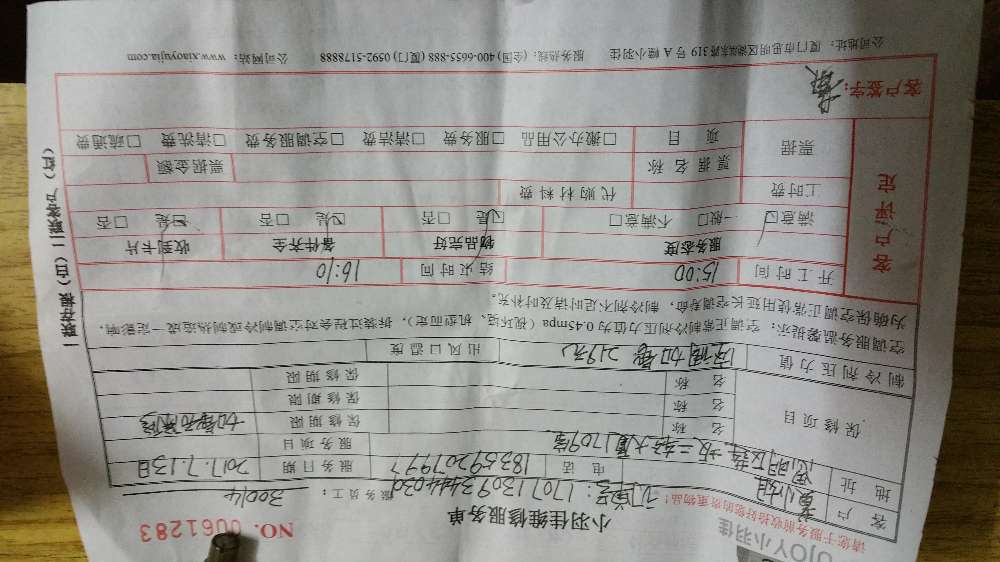 UJOY小羽佳
请您于服务前收拾好您的贵重物品!
NO. 0061283
小羽佳维修服务单
订单号: 17071309344403 服务员工: 30014
客户 电话 18359207997 服务日期 2017.7.13日
地址 思明区 大厦1709室 服务项目
保修项目 名称 保修期限
名称 保修期限
名称 保修期限
制冷剂压力值 空调加 219元 出风口温度
空调服务温馨提示: 空调正常制冷剂压力值为值0.45mpa (视环境、机型而定), 拆装过程会对空调制冷或制热造成一定影响,
为确保空调正常使用延长空调寿命, 制冷剂不足请时及时补充。
客户评定
开工时间 15:00 结束时间 16:10
服务态度 物品完好 备件齐全 收到卡片
满意☑ 一般□ 不满意□ ☑是 否□ ☑是 否□ ☑是 否□
工时费 代购材料费
票据 票据名称 票据金额
项目 □搬办公用品 □服务费 □清洁费 □空调服务费 □清洗费 □疏通费
客户签字:
公司地址: 厦门市思明区湖滨东路319号A幢小羽佳 服务热线: (全国) 400-6655-888 (厦门) 0592-5178888 公司网站: www.xiaoyujia.com
一联存根 (白) 二联客户 (红)